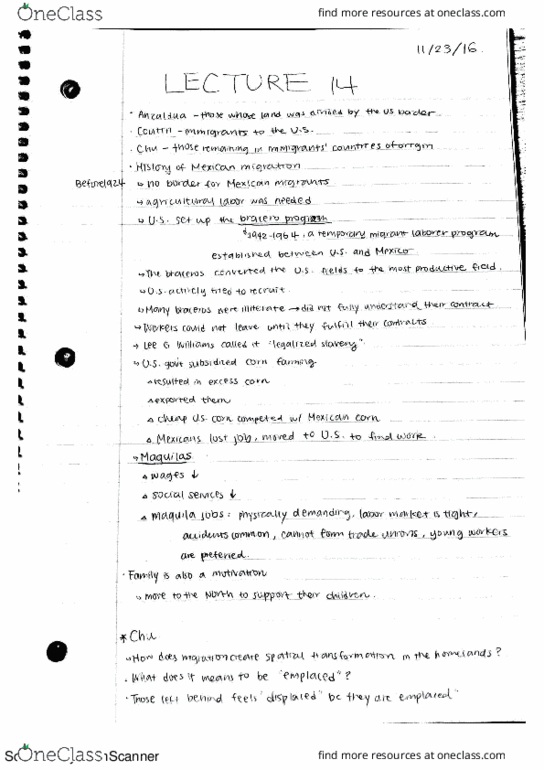 OneClass
find more resources at oneclass.com
11/23/16.
LECTURE 14
· Anzaldua - those whose land was divided by the US border
· Coutin - immigrants to the U.S.
· Chu - those remaining in immigrants' countries of origin
· History of Mexican migration
Before 1924
↳ no border for Mexican migrants
↳ agricultural labor was needed
↳ U.S. set up the bracero program
↳ 1942-1964, a temporary migrant laborer program
established between U.S. and Mexico
↳ The braceros converted the U.S. fields to the most productive field.
↳ U.S. actively tried to recruit.
↳ Many braceros were illiterate → did not fully understand their contract
↳ Workers could not leave until they fulfill their contracts
↳ Lee G Williams called it "legalized slavery".
↳ U.S. gov't subsidized corn farming
▵ resulted in excess corn
▵ exported them
▵ cheap U.S. corn competed w/ Mexican corn
▵ Mexicans lost job, moved to U.S. to find work.
↳ Maquilas
▵ wages ↓
▵ social services ↓
▵ maquila jobs: physically demanding, labor market is tight,
accidents common, cannot form trade unions, young workers
are preferred.
· Family is also a motivation
↳ move to the North to support their children.
* Chu
↳ How does migration create spatial transformation in the homelands?
· What does it means to be "emplaced"?
· Those left behind feels "displaced" bc they are emplaced"
OneClass
Scanner
find more resources at oneclass.com